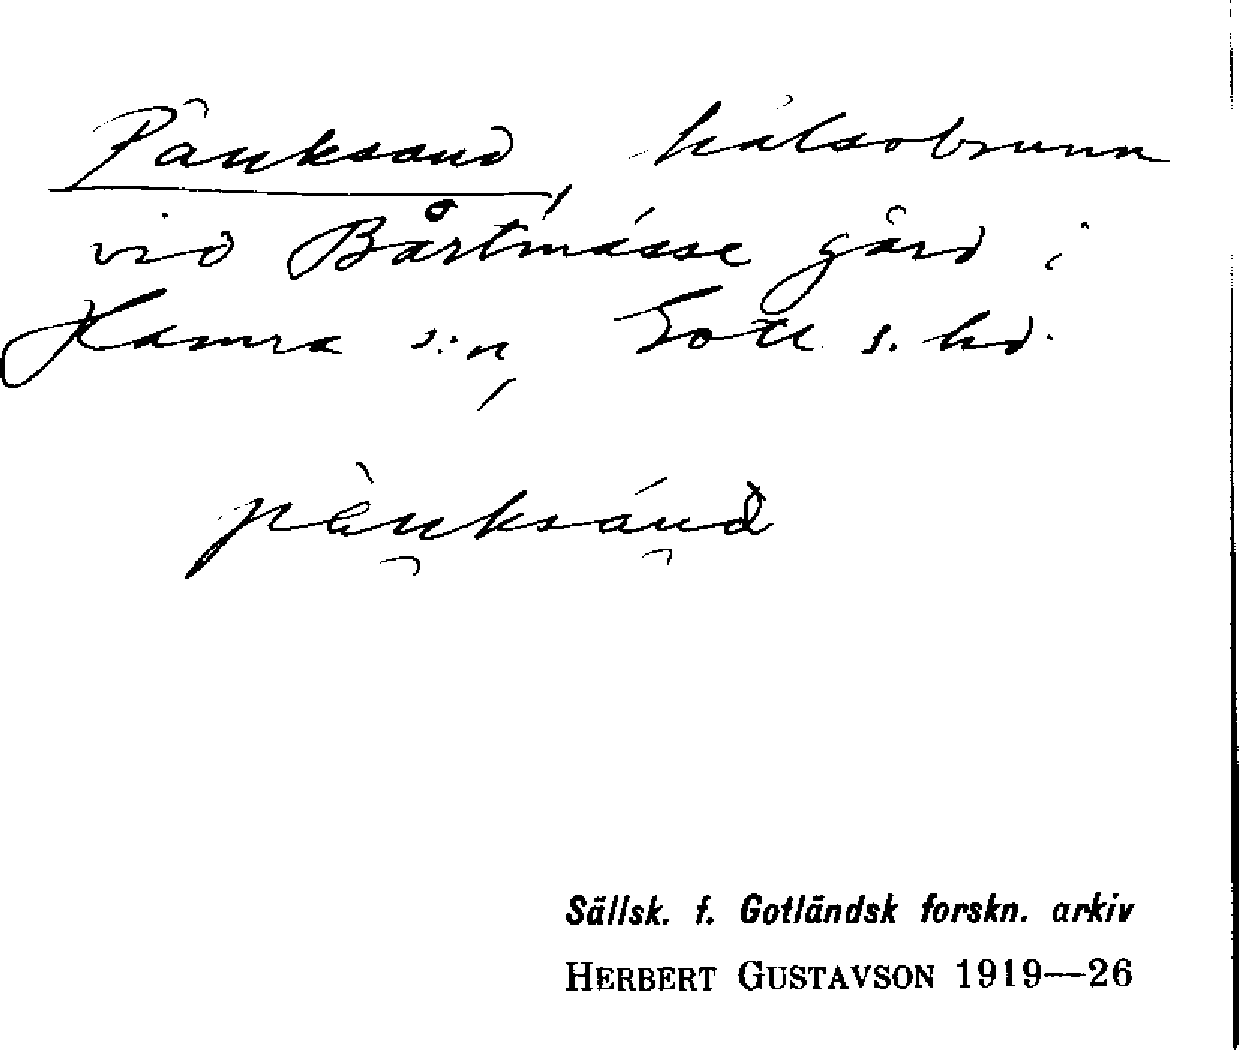 Pänksand, hälsobrunn
vid Bårtmässe gård i
Hamra s:n, Gotl s. hd.
pànksánd
Sällsk. f. Gotländsk forskn. arkiv
HERBERT GUSTAVSON 1919—26